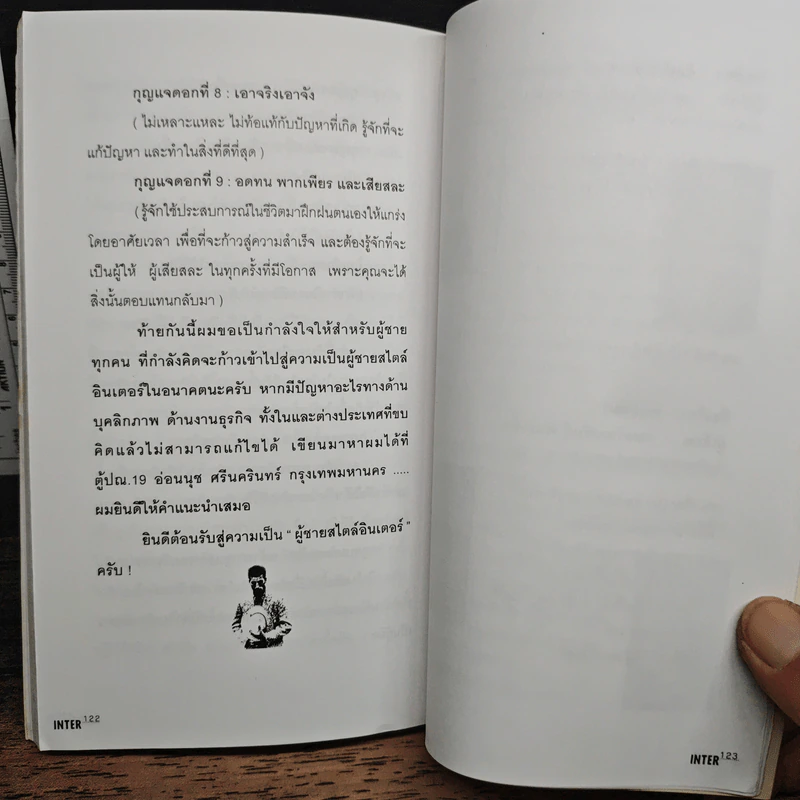 กุญแจดอกที่ 8 : เอาจริงเอาจัง
( ไม่เหลาะแหละ ไม่ท้อแท้กับปัญหาที่เกิด รู้จักที่จะ
แก้ปัญหา และทำในสิ่งที่ดีที่สุด )
กุญแจดอกที่ 9 : อดทน พากเพียร และเสียสละ
(รู้จักใช้ประสบการณ์ในชีวิตมาฝึกฝนตนเองให้แกร่ง
โดยอาศัยเวลา เพื่อที่จะก้าวสู่ความสำเร็จ และต้องรู้จักที่จะ
เป็นผู้ให้ ผู้เสียสละ ในทุกครั้งที่มีโอกาส เพราะคุณจะได้
สิ่งนั้นตอบแทนกลับมา )
ท้ายกันนี้ผมขอเป็นกำลังใจให้สำหรับผู้ชาย
ทุกคน ที่กำลังคิดจะก้าวเข้าไปสู่ความเป็นผู้ชายสไตล์
อินเตอร์ในอนาคตนะครับ หากมีปัญหาอะไรทางด้าน
บุคลิกภาพ ด้านงานธุรกิจ ทั้งในและต่างประเทศที่ขบ
คิดแล้วไม่สามารถแก้ไขได้ เขียนมาหาผมได้ที่
ตู้ปณ.19 อ่อนนุช ศรีนครินทร์ กรุงเทพมหานคร .....
ผมยินดีให้คำแนะนำเสมอ
ยินดีต้อนรับสู่ความเป็น " ผู้ชายสไตล์อินเตอร์ "
ครับ !
INTER 122
INTER 123